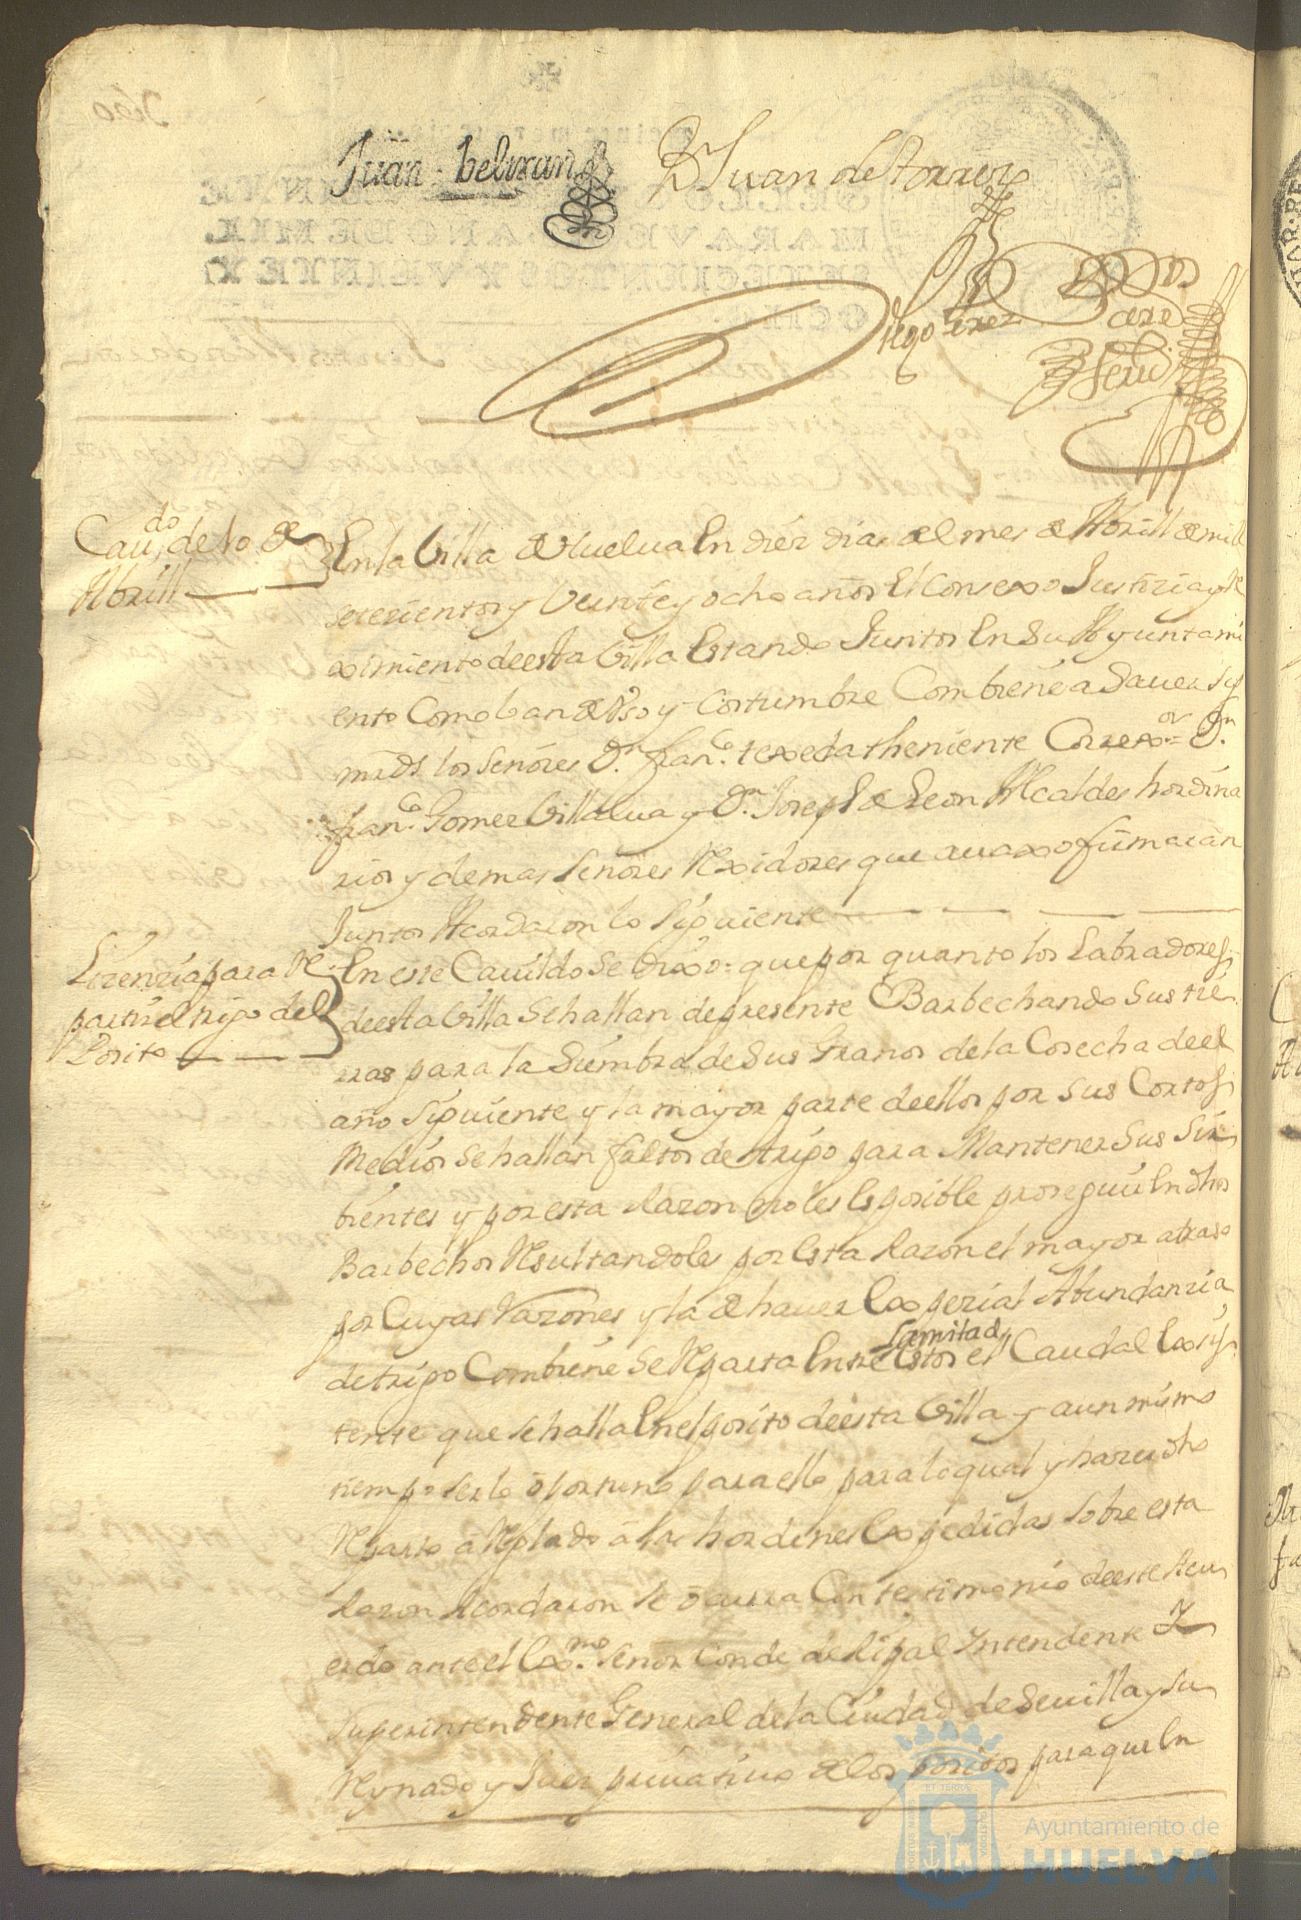 Juan beltran
D Juan de torres
diego perez
Cauᵈᵒ de 10 de
Abrill
En la Villa de Huelua En diez dias del mes de Abrill de mill
setezientos y Veinte y ocho años El Consexo Justizia y Re
ximiento de esta Villa Estando Juntos En Su Ayuntami
ento Como lo an de Vso y Costumbre Combiene a Sauer Sus
mrds los Señores Dⁿ franᶜᵒ texeda theniente Correxᵒʳ = Dⁿ
franᶜᵒ Gomez Villalua y Dⁿ Joseph de Leon Alcaldes hordina
rios y demas Señores Rexidores que auaxo firmaran
Juntos Acordaron lo Siguiente
Lizenzia para Re
partir el trigo del
Posito
En este Cauildo Se dixo = que por quanto los Labradores
de esta Villa Se hallan de presente Barbechando Sus tie
rras para la Siembra de Sus Granos de la Cosecha de el
año Siguiente y la mayor parte de ellos por sus Cortos
Medios Se hallan faltos de trigo para Mantener Sus Sir
bientes y por esta Razon no les Es posible proseguir En dhos
Barbechos Resultandoles por Esta Razon el mayor atraso
por Cuyas Razones y la de hauer Expezial Abundanzia
de trigo Combiene Se Reparta Entre Estos la mitad el Caudal Exis
tente que se halla En el posito de esta Villa y a un mismo
tiempo ser lo oportuno para ello para lo qual y hazer dho
Reparto arreglado a las hordenes Expedidas Sobre esta
Razon Acordaron Se ocurra Con testimonio de este Acu
erdo ante el Exᵐᵒ Señor Conde de Ripal Yntendente Y
Superintendente General de la Ciudad de Seuilla y Su
Reynado y Juez priuatiuo de los positos para que En
Ayuntamiento de
HUELVA